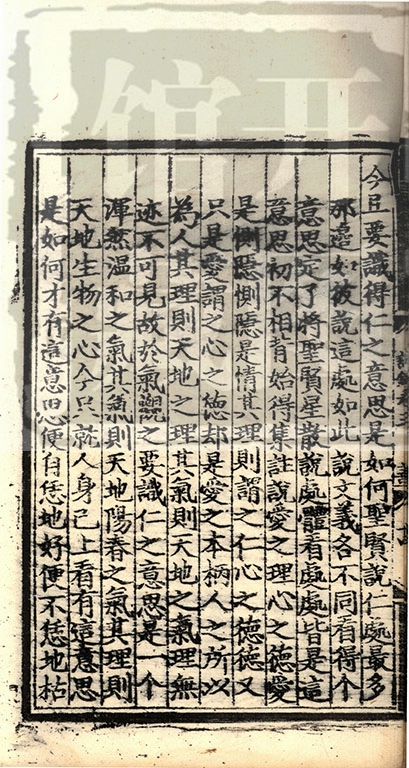 今且要識得仁之意思是如何聖賢說仁處最多
那邊如彼說這處如此說文義各不同看得个
意思定了將聖賢星散說處體看處處皆是這
意思初不相背始得集註說愛之理心之德愛
是惻隱惻隱是情其理則謂之仁心之德德又
只是愛謂之心之德却是愛之本柄人之所以
為人其理則天地之理其氣則天地之氣理無
迹不可見故於氣觀之要識仁之意思是一个
渾然温和之氣其氣則天地陽春之氣其理則
天地生物之心今只就人身己上看有這意思
是如何才有這意思便自恁地好便不恁地枯
馆开